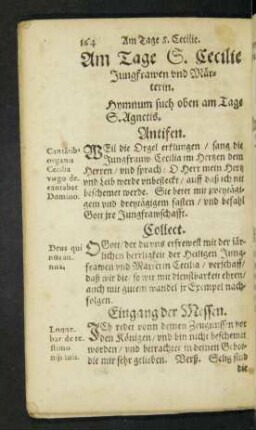 164 Am Tage S. Cecilie.
Am Tage S. Cecilie
Jungfrawen vnd Mär-
terin.
Hymnum such oben am Tage
S. Agnetis.
Antifen.
Cantātib.
organa
Cecilia
virgo de-
cantabat
Domino.
WEil die Orgel erklungen / sang die
Jungfraw Cecilia im Hertzen dem
Herren / vnd sprach: O Herr mein Hertz
vnd Leib werde vnbefleckt / auff daß ich nit
beschemet werde. Sie betet mit zweytägi-
gem vnd dreytägigem fasten / vnd befahl
Gott jre Jungfrawschafft.
Collect.
Deus qui
nos an-
nua,
O Gott / der du vns erfrewest mit der jär-
lichen herrligkeit der Heiligen Jung-
frawen vnd Martirin Cecilia / verschaff /
daß wir die / so wir mit dienstbarkeit ehren /
auch mit gutem wandel jr Exempel nach-
folgen.
Eingang der Messen.
Loque-
bar de te-
stimo-
nijs tuis.
ICh redet von deinen Zeugnissen vor
den Königen / vnd bin nicht beschemet
worden / vnd betrachtet in deinen Gebot-
die mir sehr geliebet. Verß. Selig sind
die